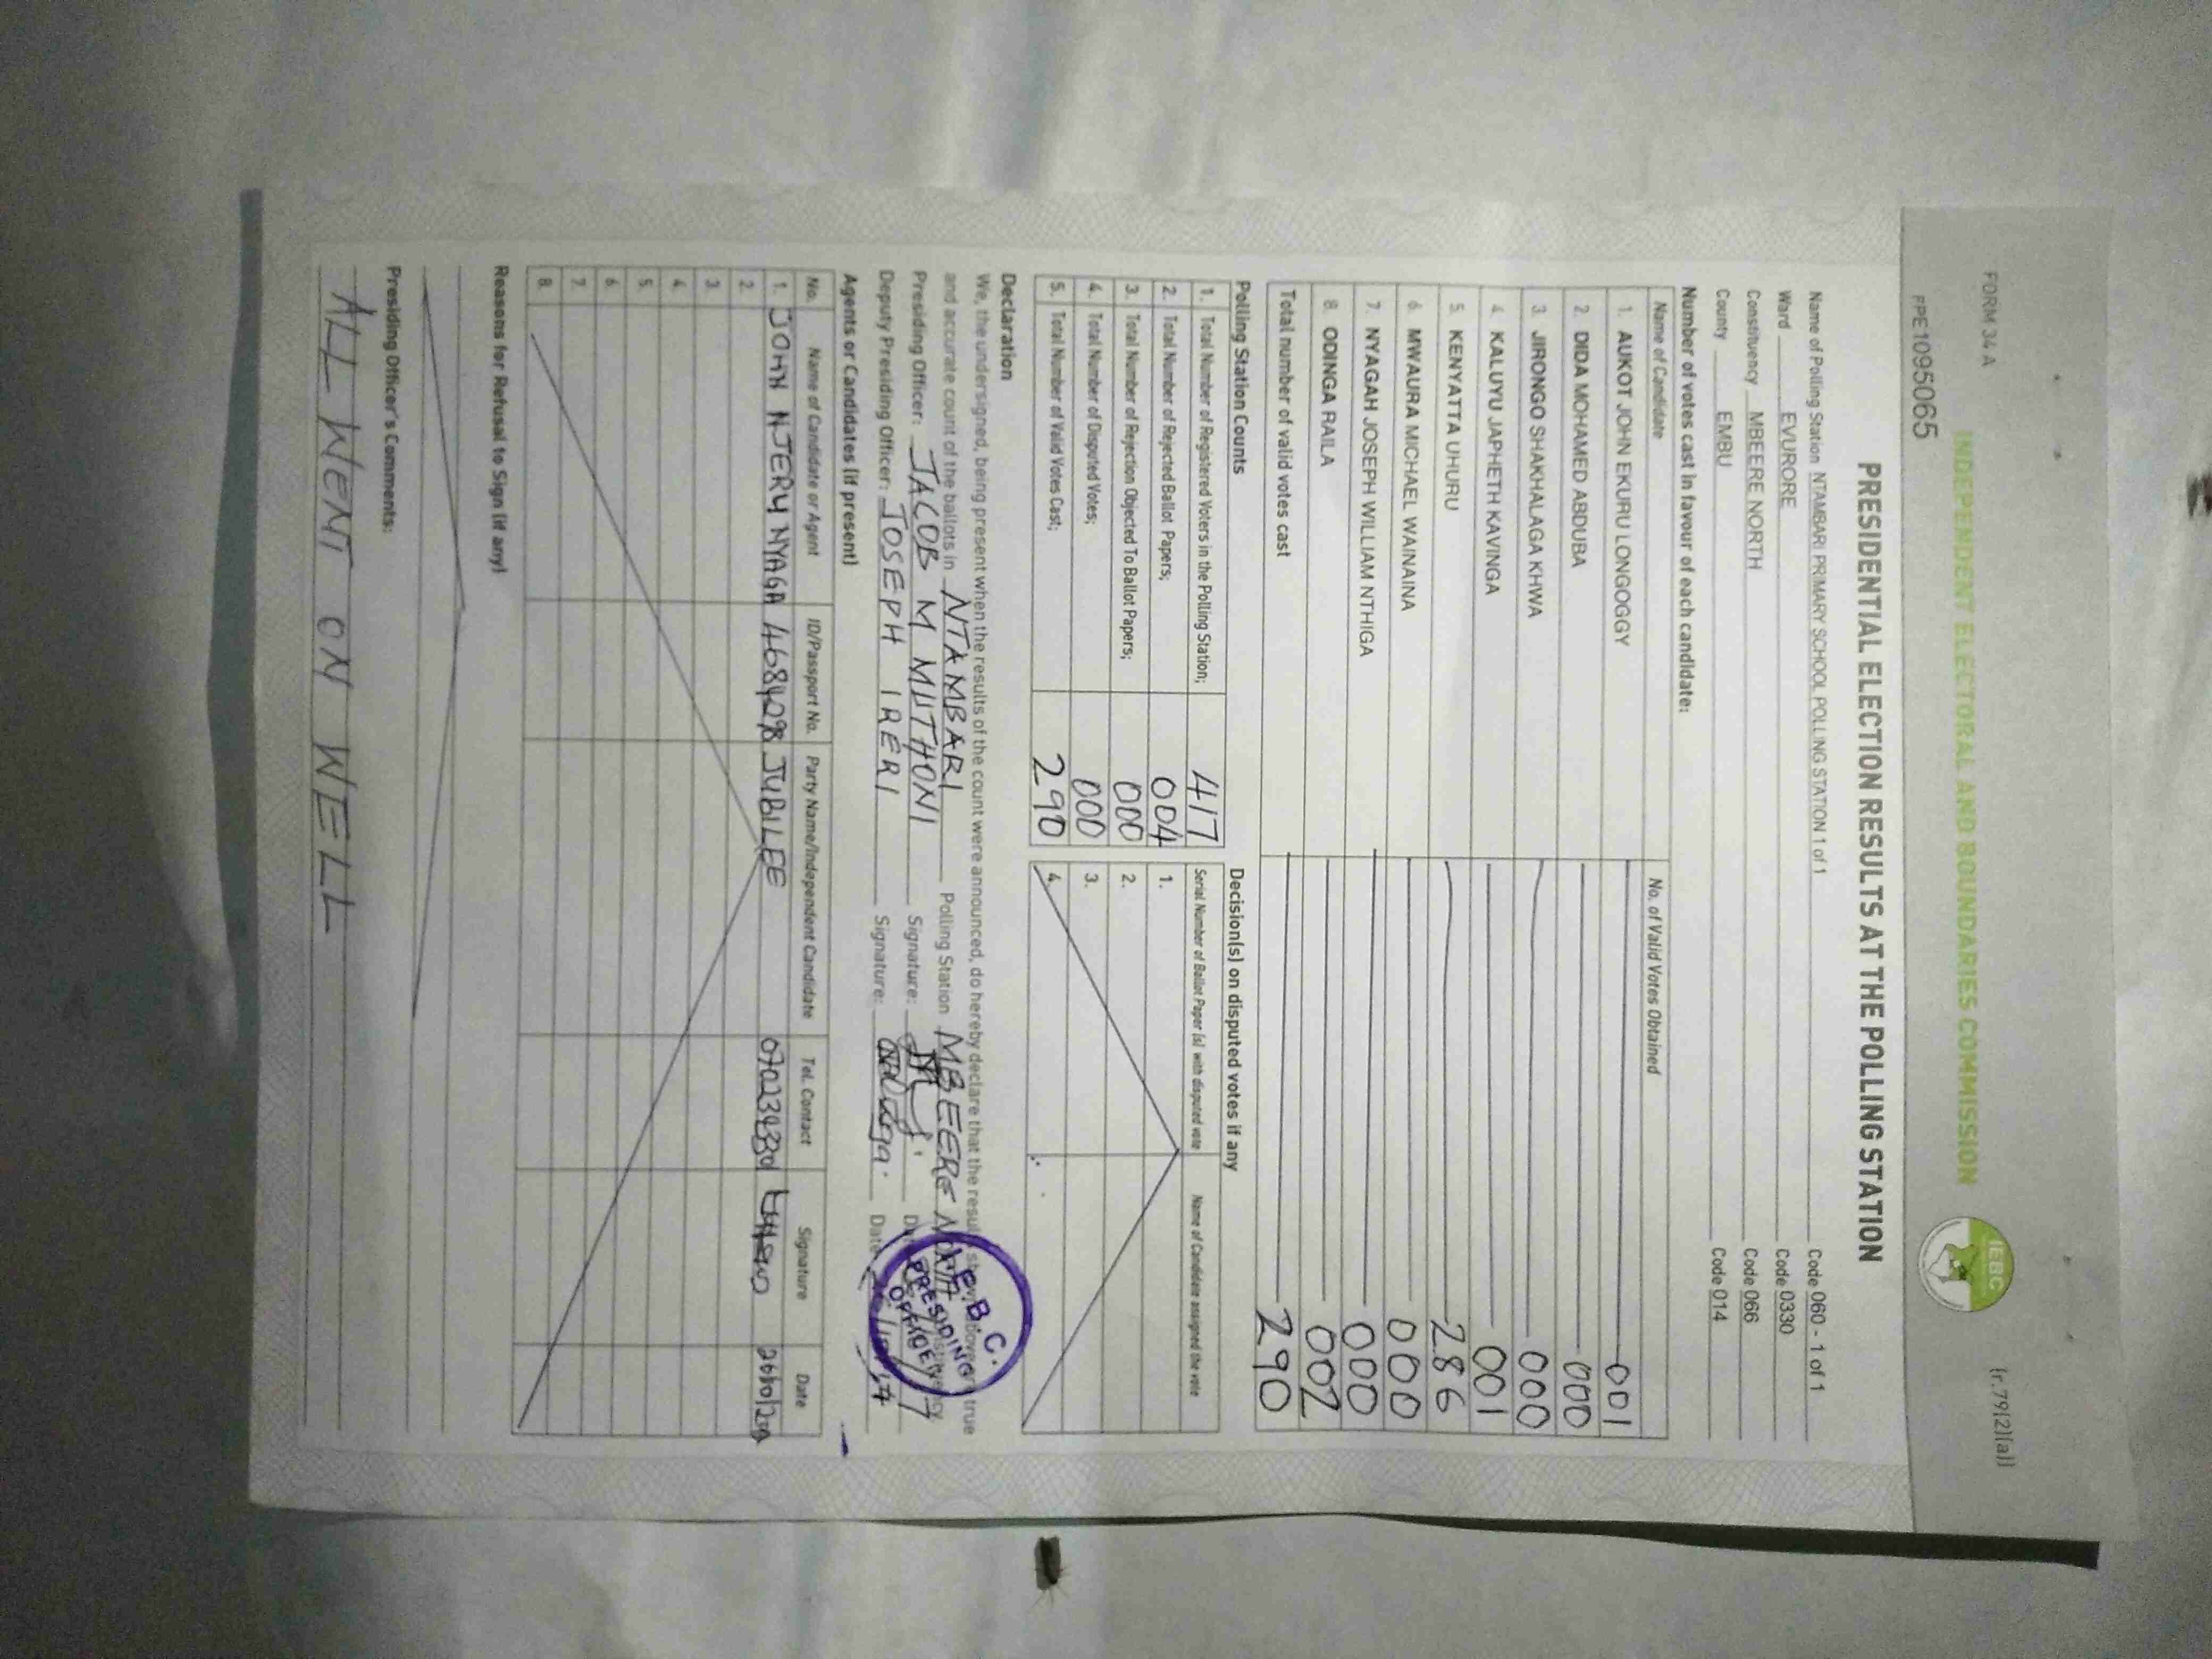 FORM 34 A
(r.79(2)(a))
INDEPENDENT ELECTORAL AND BOUNDARIES COMMISSION
IEBC
PPE1095065
PRESIDENTIAL ELECTION RESULTS AT THE POLLING STATION
Name of Polling Station NTAMBARI PRIMARY SCHOOL POLLING STATION 1 of 1 Code 060 - 1 of 1
Ward EVURORE Code 0330
Constituency MBEERE NORTH Code 066
County EMBU Code 014
Number of votes cast in favour of each candidate:
Name of Candidate No. of Valid Votes Obtained
1. AUKOT JOHN EKURU LONGOGGY 001
2. DIDA MOHAMED ABDUBA 000
3. JIRONGO SHAKHALAGA KHWA 000
4. KALUYU JAPHETH KAVINGA 001
5. KENYATTA UHURU 286
6. MWAURA MICHAEL WAINAINA 000
7. NYAGAH JOSEPH WILLIAM NTHIGA 000
8. ODINGA RAILA 002
Total number of valid votes cast 290
Polling Station Counts
1. Total Number of Registered Voters in the Polling Station; 417
2. Total Number of Rejected Ballot Papers; 004
3. Total Number of Rejection Objected To Ballot Papers; 000
4. Total Number of Disputed Votes; 000
5. Total Number of Valid Votes Cast; 290
Decision(s) on disputed votes if any
Serial Number of Ballot Paper (s) with disputed vote Name of Candidate assigned the vote
1.
2.
3.
4.
Declaration
We, the undersigned, being present when the results of the count were announced, do hereby declare that the results shown above true
and accurate count of the ballots in NTAMBARI Polling Station MBEERE NORTH Constituency
Presiding Officer: JACOB M MUTHONI Signature:
Deputy Presiding Officer: JOSEPH IRERI Signature: Date
E.B.C.
PRESIDING
OFFICER
Agents or Candidates (if present)
No. Name of Candidate or Agent ID/Passport No. Party Name/Independent Candidate Tel. Contact Signature Date
1. JOHN NJERU NYAGA JUBILEE
2.
3.
4.
5.
6.
7.
8.
Reasons for Refusal to Sign (if any)
Presiding Officer's Comments:
ALL WENT ON WELL